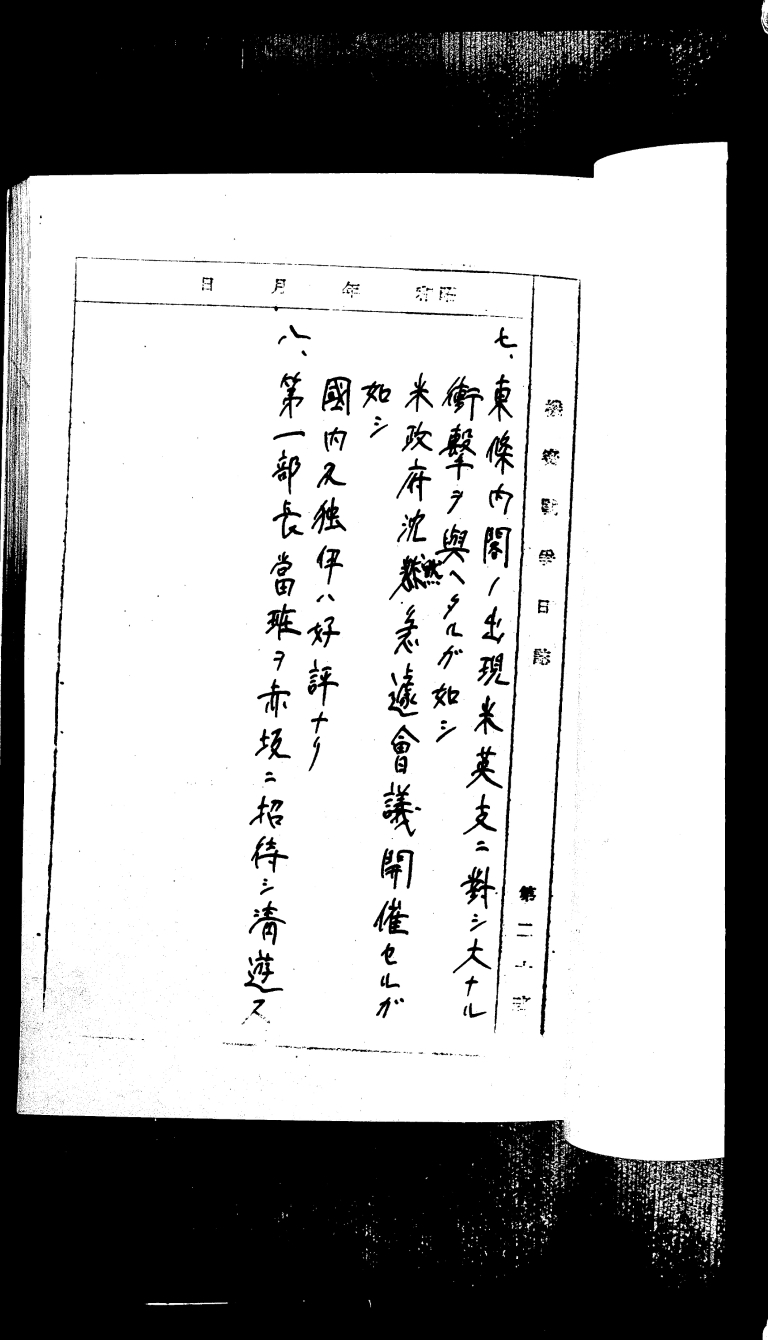 機密戰爭日誌
第二十
昭和 年 月 日
七、東條内閣ノ出現米英支ニ對シ大ナル
衝撃ヲ與ヘタルガ如シ
米政府沈 然急遽會議開催セルガ
如シ
國内及独伊ハ好評ナリ
八、第一部長當班ヲ赤坂ニ招待シ清遊ス